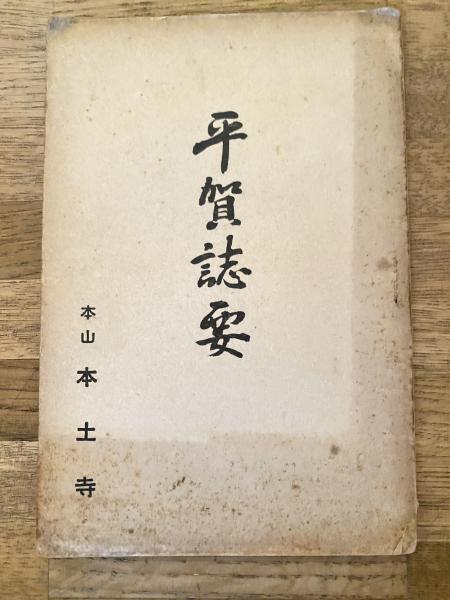 平賀誌要
本山 本土寺